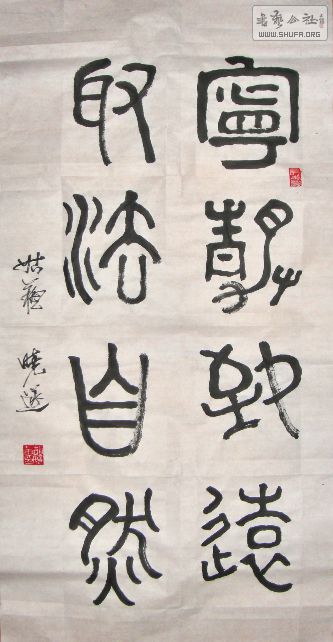 寧靜致遠
取法自然
姑蘇
曉蓮
書藝公社
WWW.SHUFA.ORG